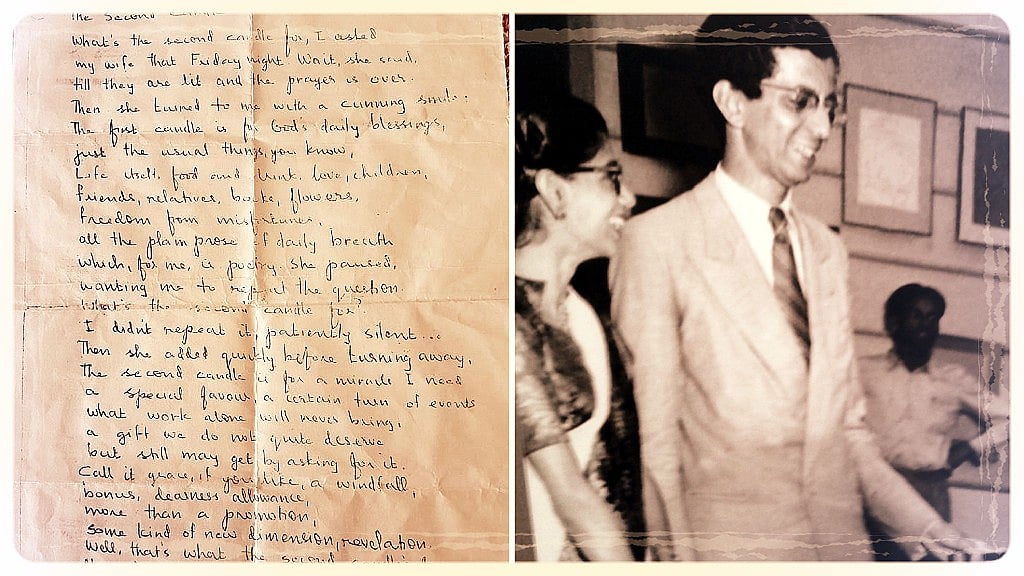 The Second Candle
What's the second candle for, I asked
my wife that Friday night. Wait, she said,
till they are lit and the prayer is over.
Then she turned to me with a cunning smile:
The first candle is for God's daily blessings,
just the usual things, you know,
Life itself, food and drink, love, children,
friends, relatives, books, flowers,
freedom from misfortunes,
all the plain prose of daily breath
which, for me, is poetry. She paused,
wanting me to repeat the question.
What's the second candle for?
I didn't repeat it, patiently silent...
Then she added quickly before turning away,
The second candle is for a miracle I need
a special favour a certain turn of events
what work alone will never bring,
a gift we do not quite deserve
but still may get by asking for it.
Call it grace, if you like, a windfall,
bonus, dearness allowance,
more than a promotion,
some kind of new dimension, revelation.
Well, that's what the second